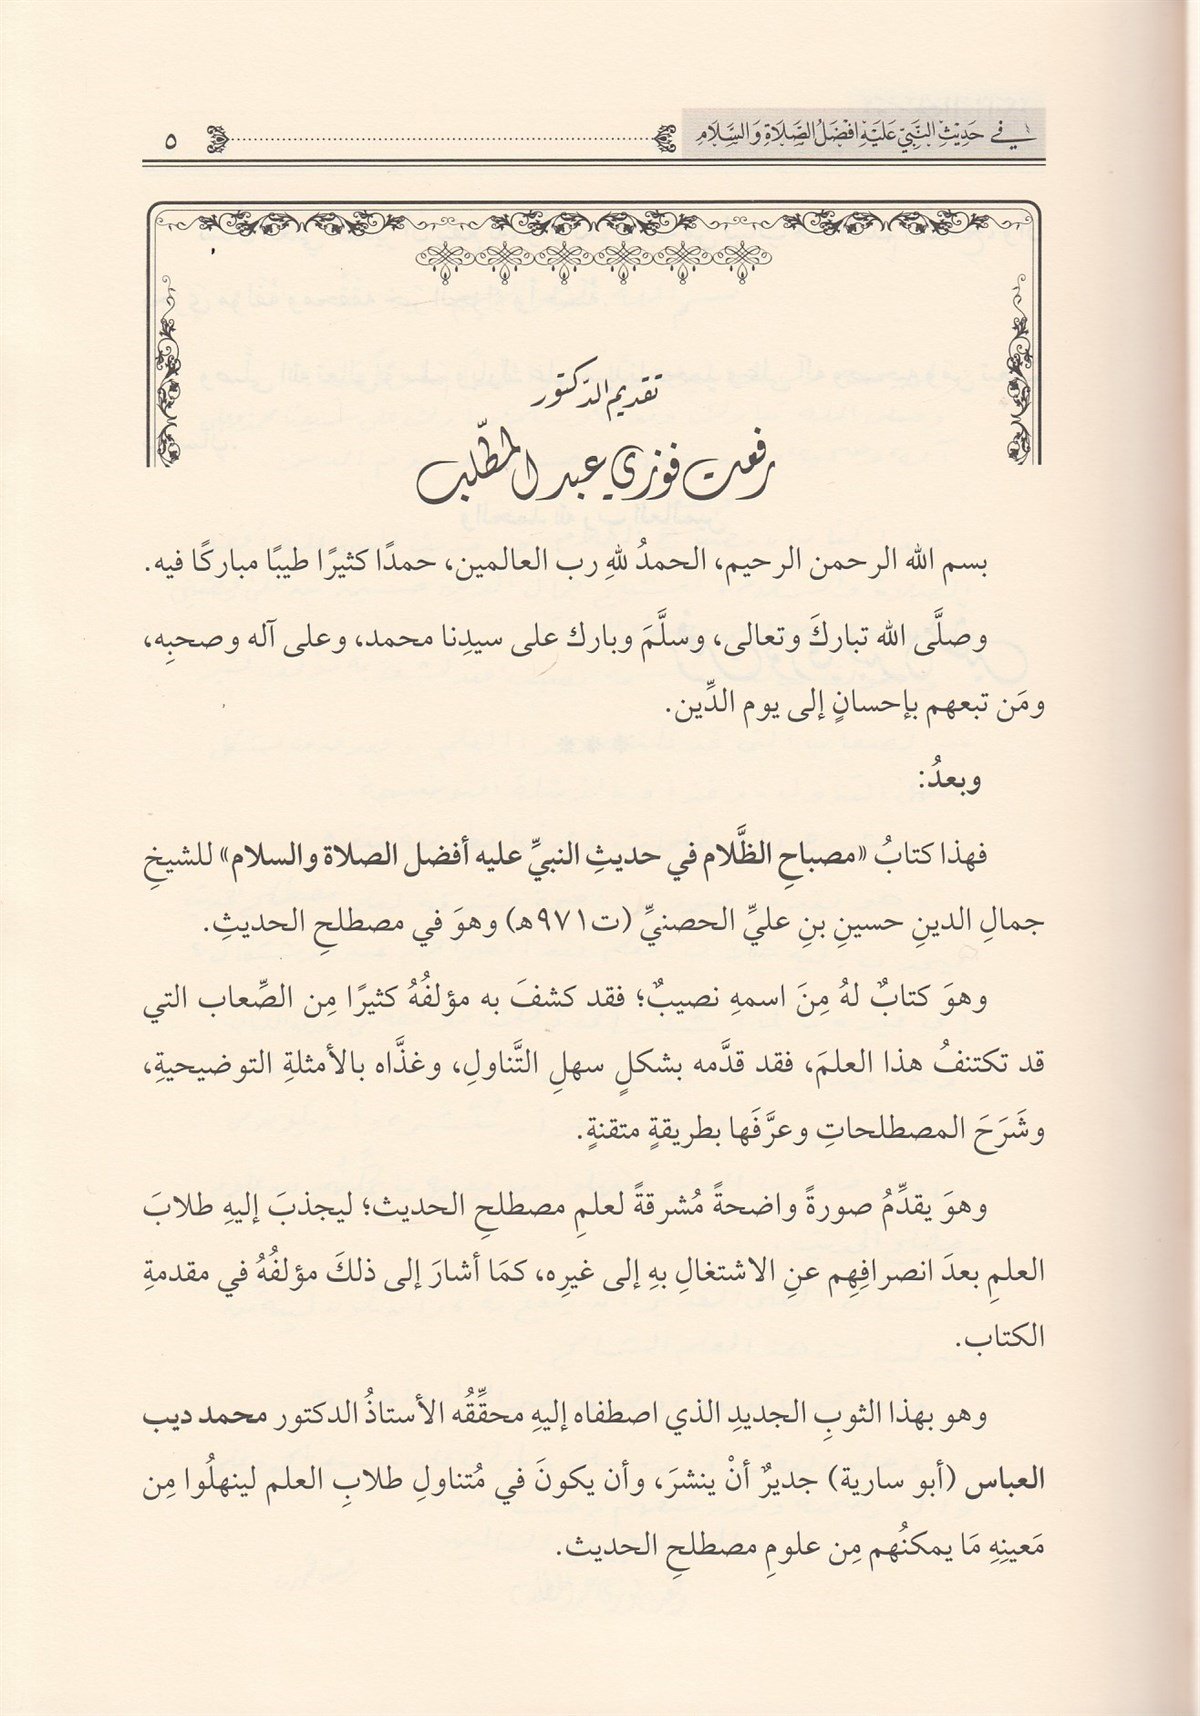 في حَدِيثِ النَّبِيِّ عَلَيْهِ أَفْضَلُ الصَّلَاةِ وَالسَّلَامِ ٥
تقديم الدّكتور
رفعت فوزي عبد المطّلب
بسم الله الرحمن الرحيم، الحمدُ للهِ رب العالمين، حمدًا كثيرًا طيبًا مباركًا فيه.
وصلَّى الله تباركَ وتعالى، وسلَّمَ وبارك على سيدِنا محمد، وعلى آله وصحبِه،
ومَن تبعهم بإحسانٍ إلى يوم الدِّين.
وبعدُ:
فهذا كتابُ «مصباحِ الظَّلام في حديثِ النبيِّ عليه أفضل الصلاة والسلام» للشيخِ
جمالِ الدينِ حسينِ بنِ عليٍّ الحصنيِّ (ت٩٧١هـ) وهوَ في مصطلحِ الحديثِ.
وهوَ كتابٌ لهُ مِنَ اسمهِ نصيبٌ؛ فقد كشفَ به مؤلفُهُ كثيرًا مِن الصِّعاب التي
قد تكتنفُ هذا العلمَ، فقد قدَّمه بشكلٍ سهلِ التَّناولِ، وغذَّاه بالأمثلةِ التوضيحيةِ،
وشَرَحَ المصطلحاتِ وعرَّفَها بطريقةٍ متقنةٍ.
وهوَ يقدِّمُ صورةً واضحةً مُشرقةً لعلمِ مصطلحِ الحديث؛ ليجذبَ إليهِ طلابَ
العلمِ بعدَ انصرافِهِم عنِ الاشتغالِ بهِ إلى غيرِه، كمَا أشارَ إلى ذلكَ مؤلفُهُ في مقدمةِ
الكتاب.
وهو بهذا الثوبِ الجديدِ الذي اصطفاه إليهِ محقِّقُه الأستاذُ الدكتور محمد ديب
العباس (أبو سارية) جديرٌ أنْ ينشرَ، وأن يكونَ في مُتناولِ طلابِ العلم لينهلُوا مِن
مَعينِهِ مَا يمكنُهم مِن علومِ مصطلحِ الحديث.